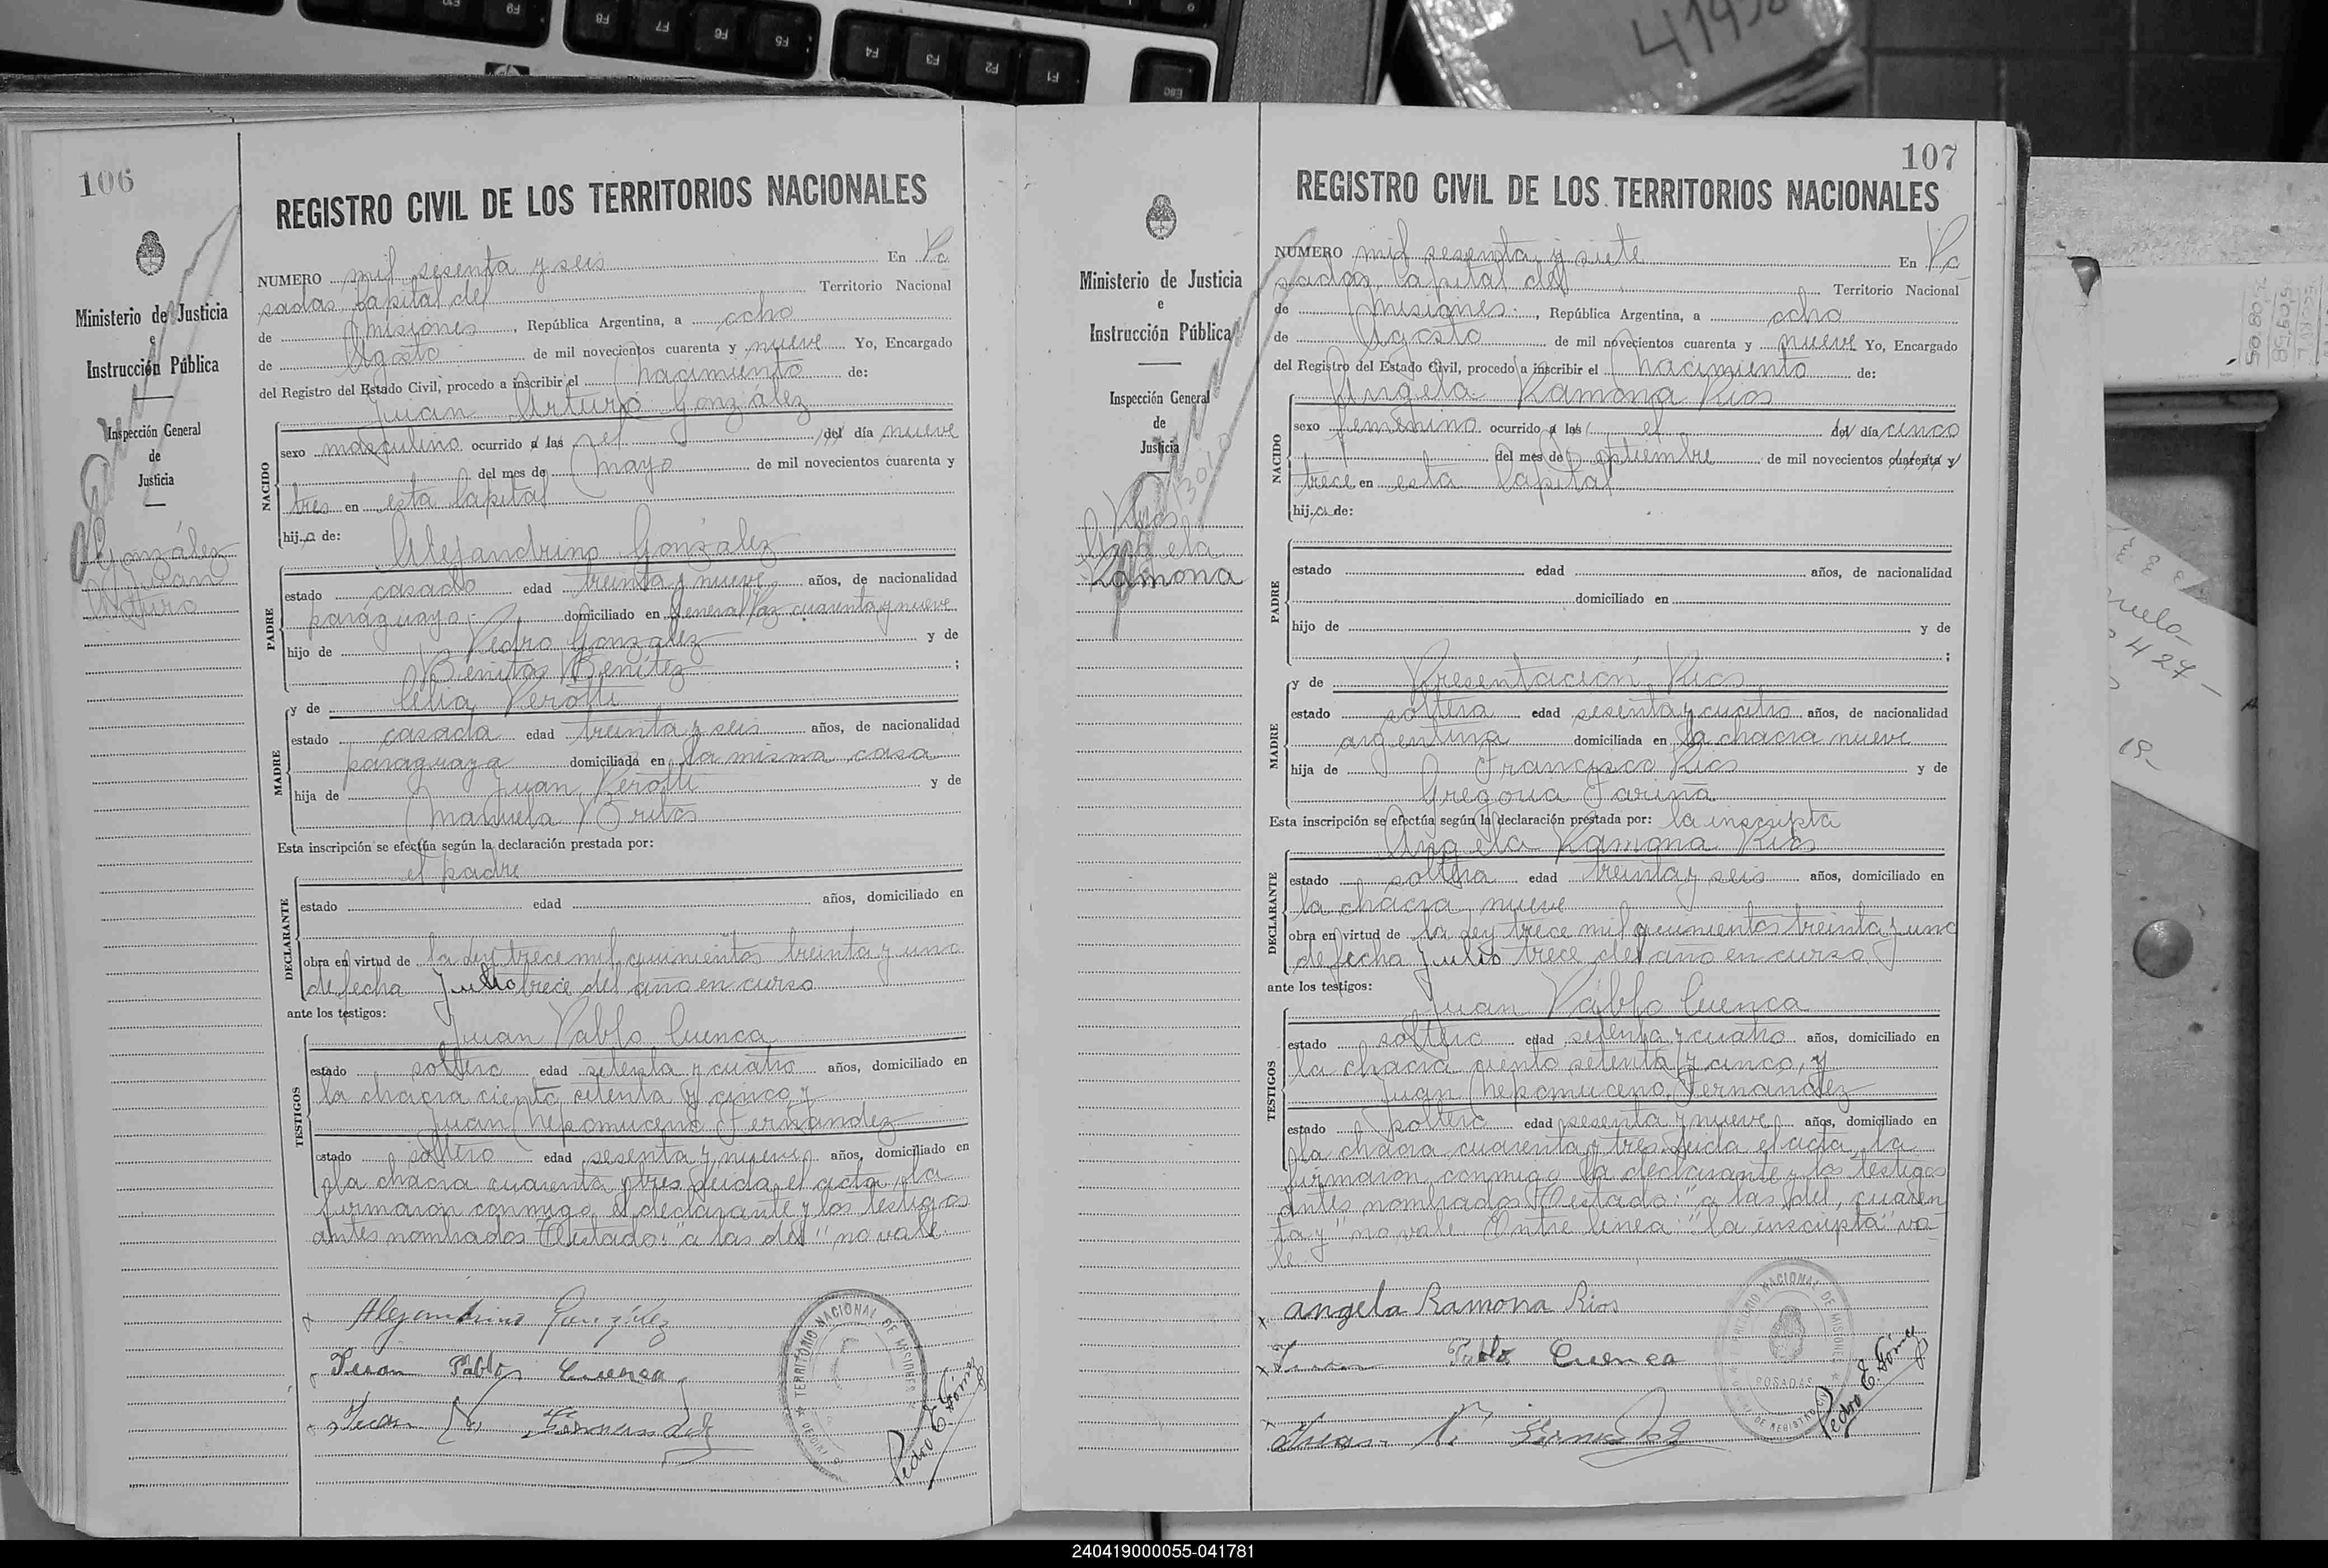 41950
106
REGISTRO CIVIL DE LOS TERRITORIOS NACIONALES
Ministerio de Justicia
e
Instrucción Pública
Inspección General
de
Justicia
González
Juan
Arturo
NUMERO mil sesenta y seis En Po
sadas Capital del Territorio Nacional
de Misiones, República Argentina, a ocho
de Agosto de mil novecientos cuarenta y nueve Yo, Encargado
del Registro del Estado Civil, procedo a inscribir el nacimiento de:
Juan Arturo González
NACIDO
sexo masculino ocurrido a las el del día nueve
del mes de mayo de mil novecientos cuarenta y
tres en esta Capital
hijo de:
Alejandrino González
PADRE
estado casado edad treinta y nueve años, de nacionalidad
paraguayo domiciliado en General Paz cuarenta y nueve
hijo de Pedro González y de
Benitas Benítez ;
y de Celia Perotti
MADRE
estado casada edad treinta y seis años, de nacionalidad
paraguaya domiciliada en la misma casa
hija de Juan Perotti y de
Manuela Britos
Esta inscripción se efectúa según la declaración prestada por:
el padre
DECLARANTE
estado edad años, domiciliado en
obra en virtud de la ley trece mil quinientos treinta y uno
de fecha Julio trece del año en curso
ante los testigos:
Juan Pablo Cuenca
TESTIGOS
estado soltero edad setenta y cuatro años, domiciliado en
la chacra ciento setenta y cinco, y
Juan Nepomuceno Fernandez
estado soltero edad sesenta y nueve años, domiciliado en
la chacra cuarenta y tres. Leida el acta, la
firmaron conmigo el declarante y los testigos
antes nombrados. Testado: "a las del" no vale.
Alejandrino González
Juan Pablo Cuenca
Juan N. Fernandez
TERRITORIO NACIONAL DE MISIONES
Pedro E. Gómez
107
REGISTRO CIVIL DE LOS TERRITORIOS NACIONALES
Ministerio de Justicia
e
Instrucción Pública
Inspección General
de
Justicia
Rios
Angela
Ramona
NUMERO mil sesenta y siete En Po
sadas, Capital del Territorio Nacional
de Misiones, República Argentina, a ocho
de Agosto de mil novecientos cuarenta y nueve Yo, Encargado
del Registro del Estado Civil, procedo a inscribir el nacimiento de:
Angela Ramona Rios
NACIDO
sexo femenino ocurrido a las el del día cinco
del mes de Septiembre de mil novecientos cuarenta y
trece en esta Capital
hija de:
PADRE
estado edad años, de nacionalidad
domiciliado en
hijo de y de
;
y de Presentación Rios
MADRE
estado soltera edad sesenta y cuatro años, de nacionalidad
argentina domiciliada en la chacra nueve
hija de Francisco Rios y de
Gregoria Farina
Esta inscripción se efectúa según la declaración prestada por: la inscripta
Angela Ramona Rios
DECLARANTE
estado soltera edad treinta y seis años, domiciliado en
la chacra nueve
obra en virtud de la ley trece mil quinientos treinta y uno
de fecha Julio trece del año en curso
ante los testigos:
Juan Pablo Cuenca
TESTIGOS
estado soltero edad setenta y cuatro años, domiciliado en
la chacra ciento setenta y cinco, y
Juan Nepomuceno Fernandez
estado soltero edad sesenta y nueve años, domiciliado en
la chacra cuarenta y tres. Leida el acta, la
firmaron conmigo la declarante y los testigos
antes nombrados. Testado: "a las, del, cuaren
ta y" no vale. Entre linea: "la inscripta" va-
le.
Angela Ramona Rios
Juan Pablo Cuenca
Juan N. Fernandez
TERRITORIO NACIONAL DE MISIONES
POSADAS
Pedro E. Gómez
240419000055-041781